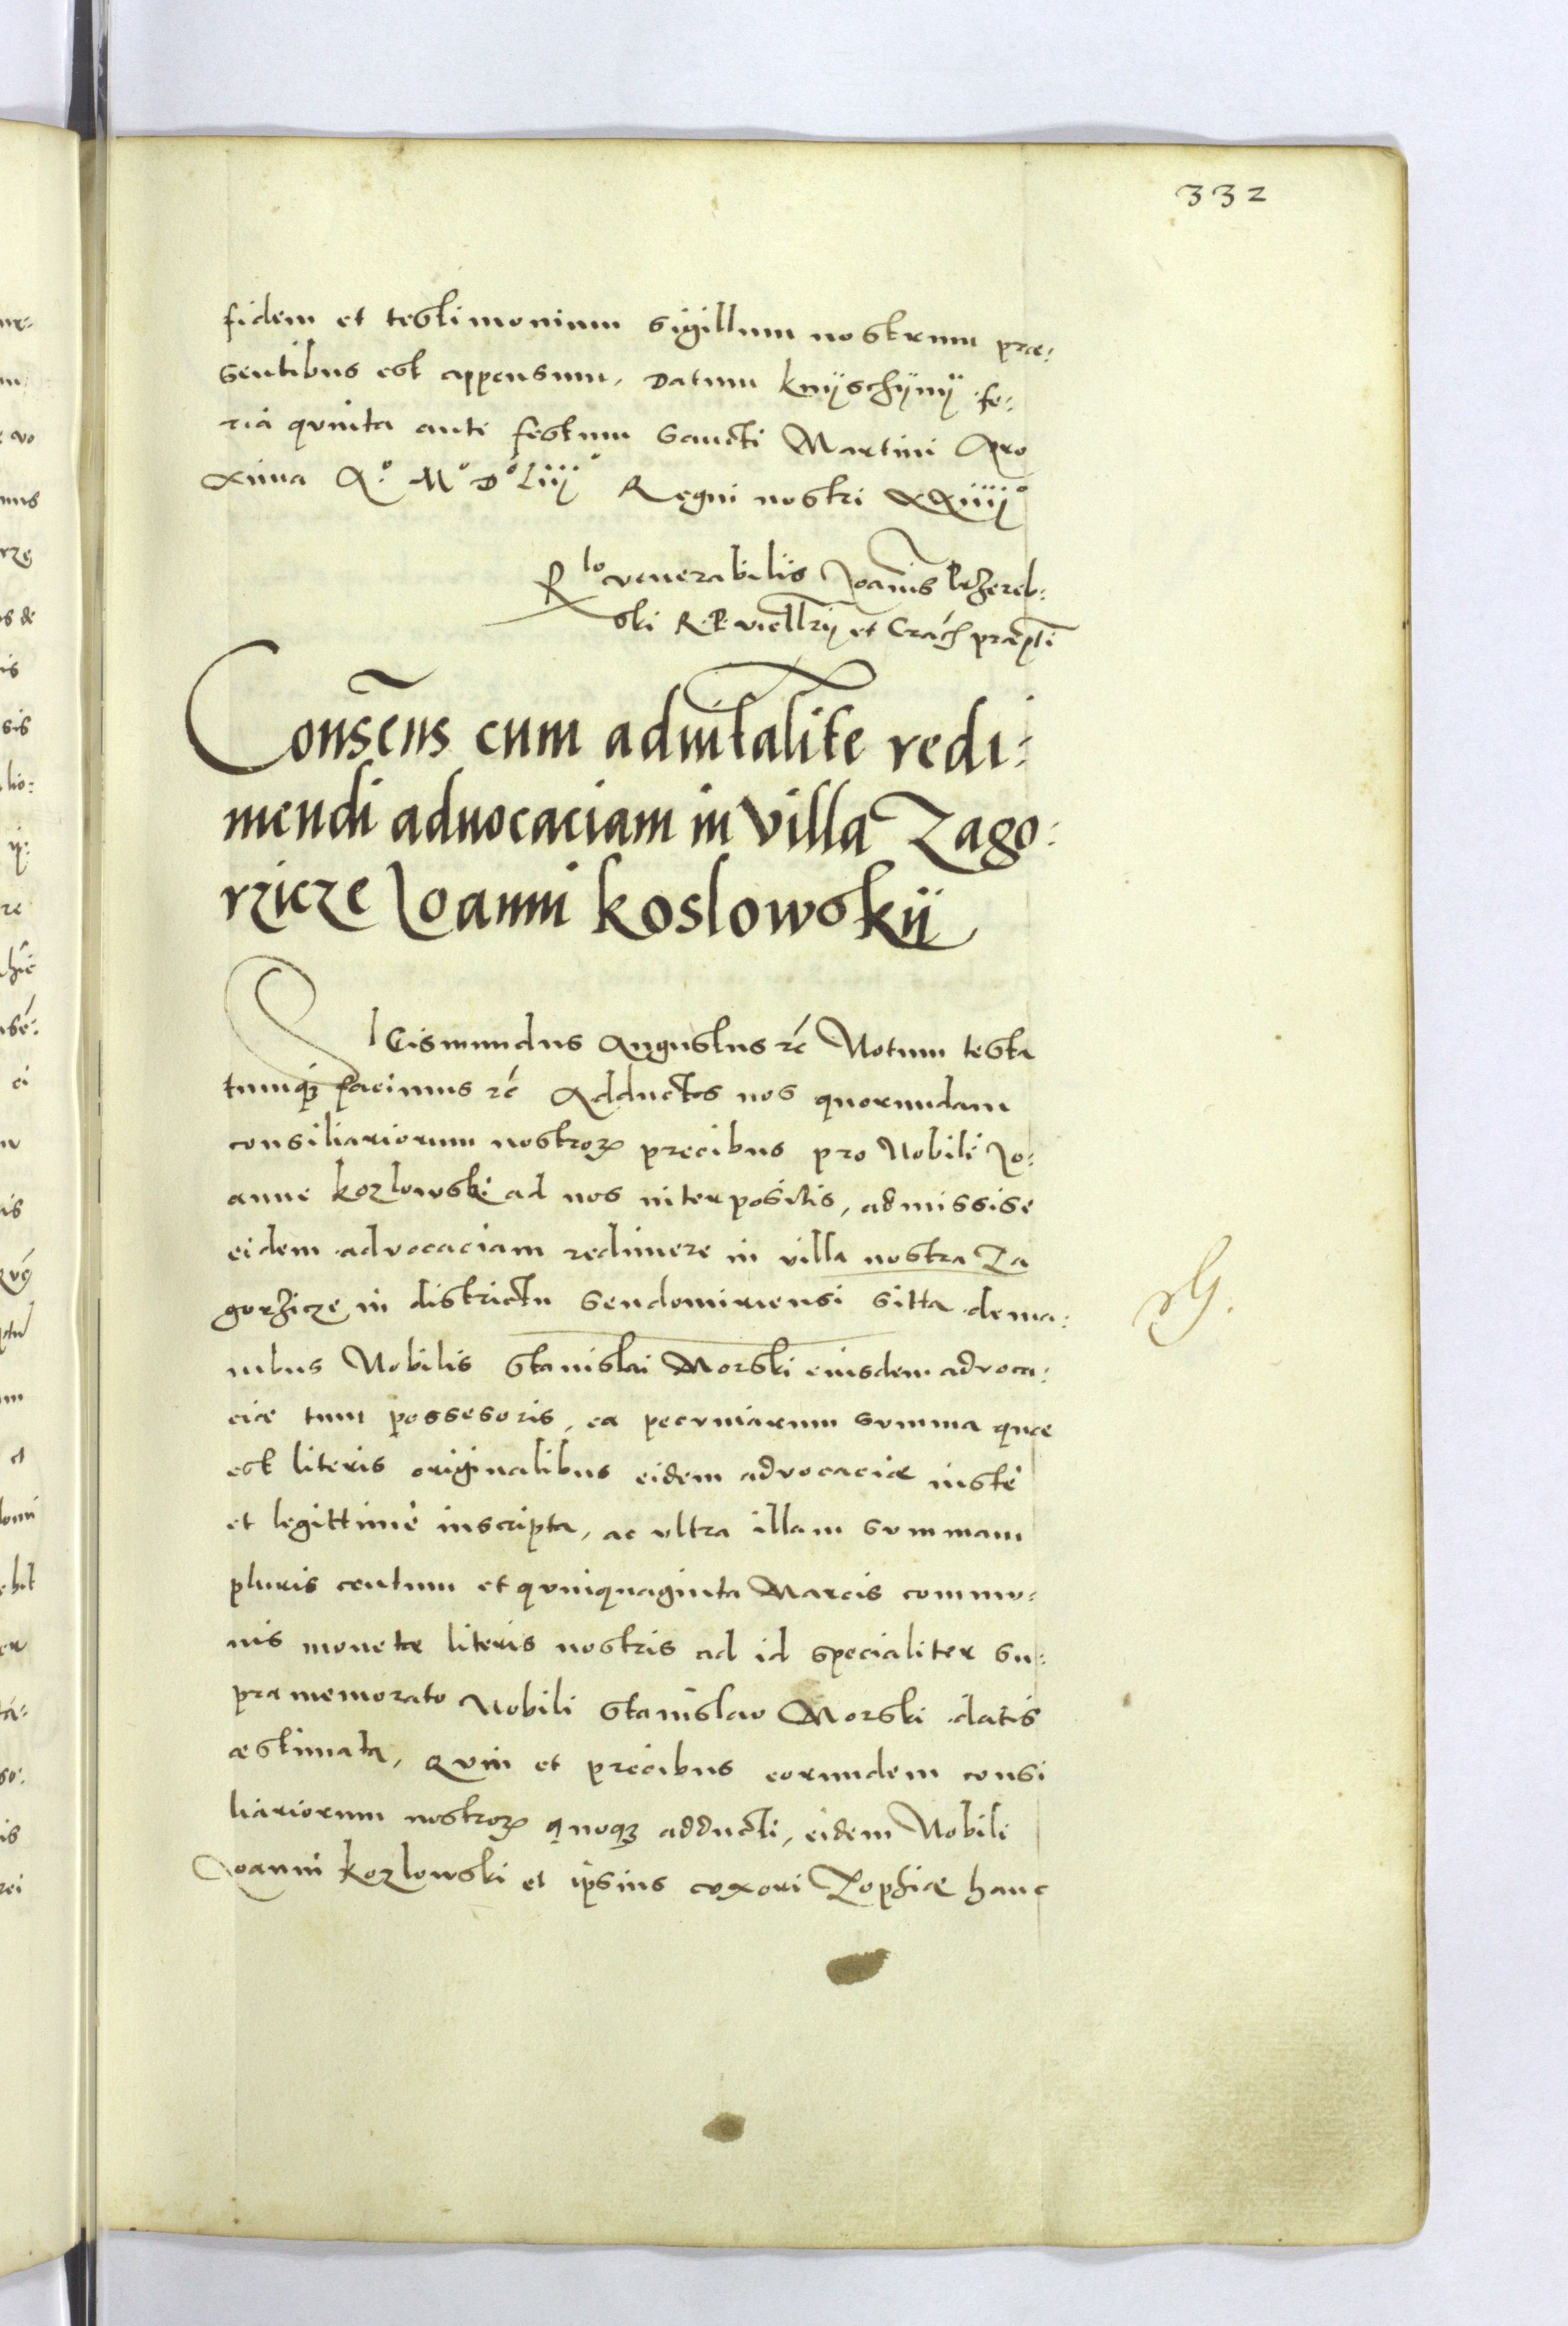 332
fidem et testimonium sigillum nostrum præ:
sentibus est appensum, Datum knÿschÿnÿ fe:
ria quinta ante festum Sancti Martini Pro
xima A° M° D° Liij° Regni nostri xxiiij°
R lo venerabilis Joannis Przereb:
ski R. P. vicecllrÿ et Crac̃ præpti
Consens̃ cum aduitalite redi:
mendi aduocaciam in villa Zago:
rzicze Joanni koslowskÿ
SIGismundus Augustus rc̃ Notum testa
tumq3 facimus rc̃ Adductos nos quorundam
consiliariorum nostror3 precibus pro Nobili Jo:
anne kozlowski ad nos interpositis, admissise
eidem advocaciam redimere in villa nostra Za
gorzicze in districtu Sendomiriensi sitta de ma:
nibus Nobilis Stanislai Morski eiusdem advoca:
ciæ tum possesoris, ea pecuniarum summa quæ
est literis originalibus eidem advocaciæ iuste
et legittime inscripta, ac ultra illam summam
pluris centum et quinquaginta Marcis commu:
nis monetæ literis nostris ad id specialiter su:
pra memorato Nobili Stanislao Morski datis
æstimata, Quin et precibus eorundem consi
liariorum nostror3 quoq3 adducti, eidem Nobili
Joanni kozlowski et ipsius cuxori Zophiæ hanc